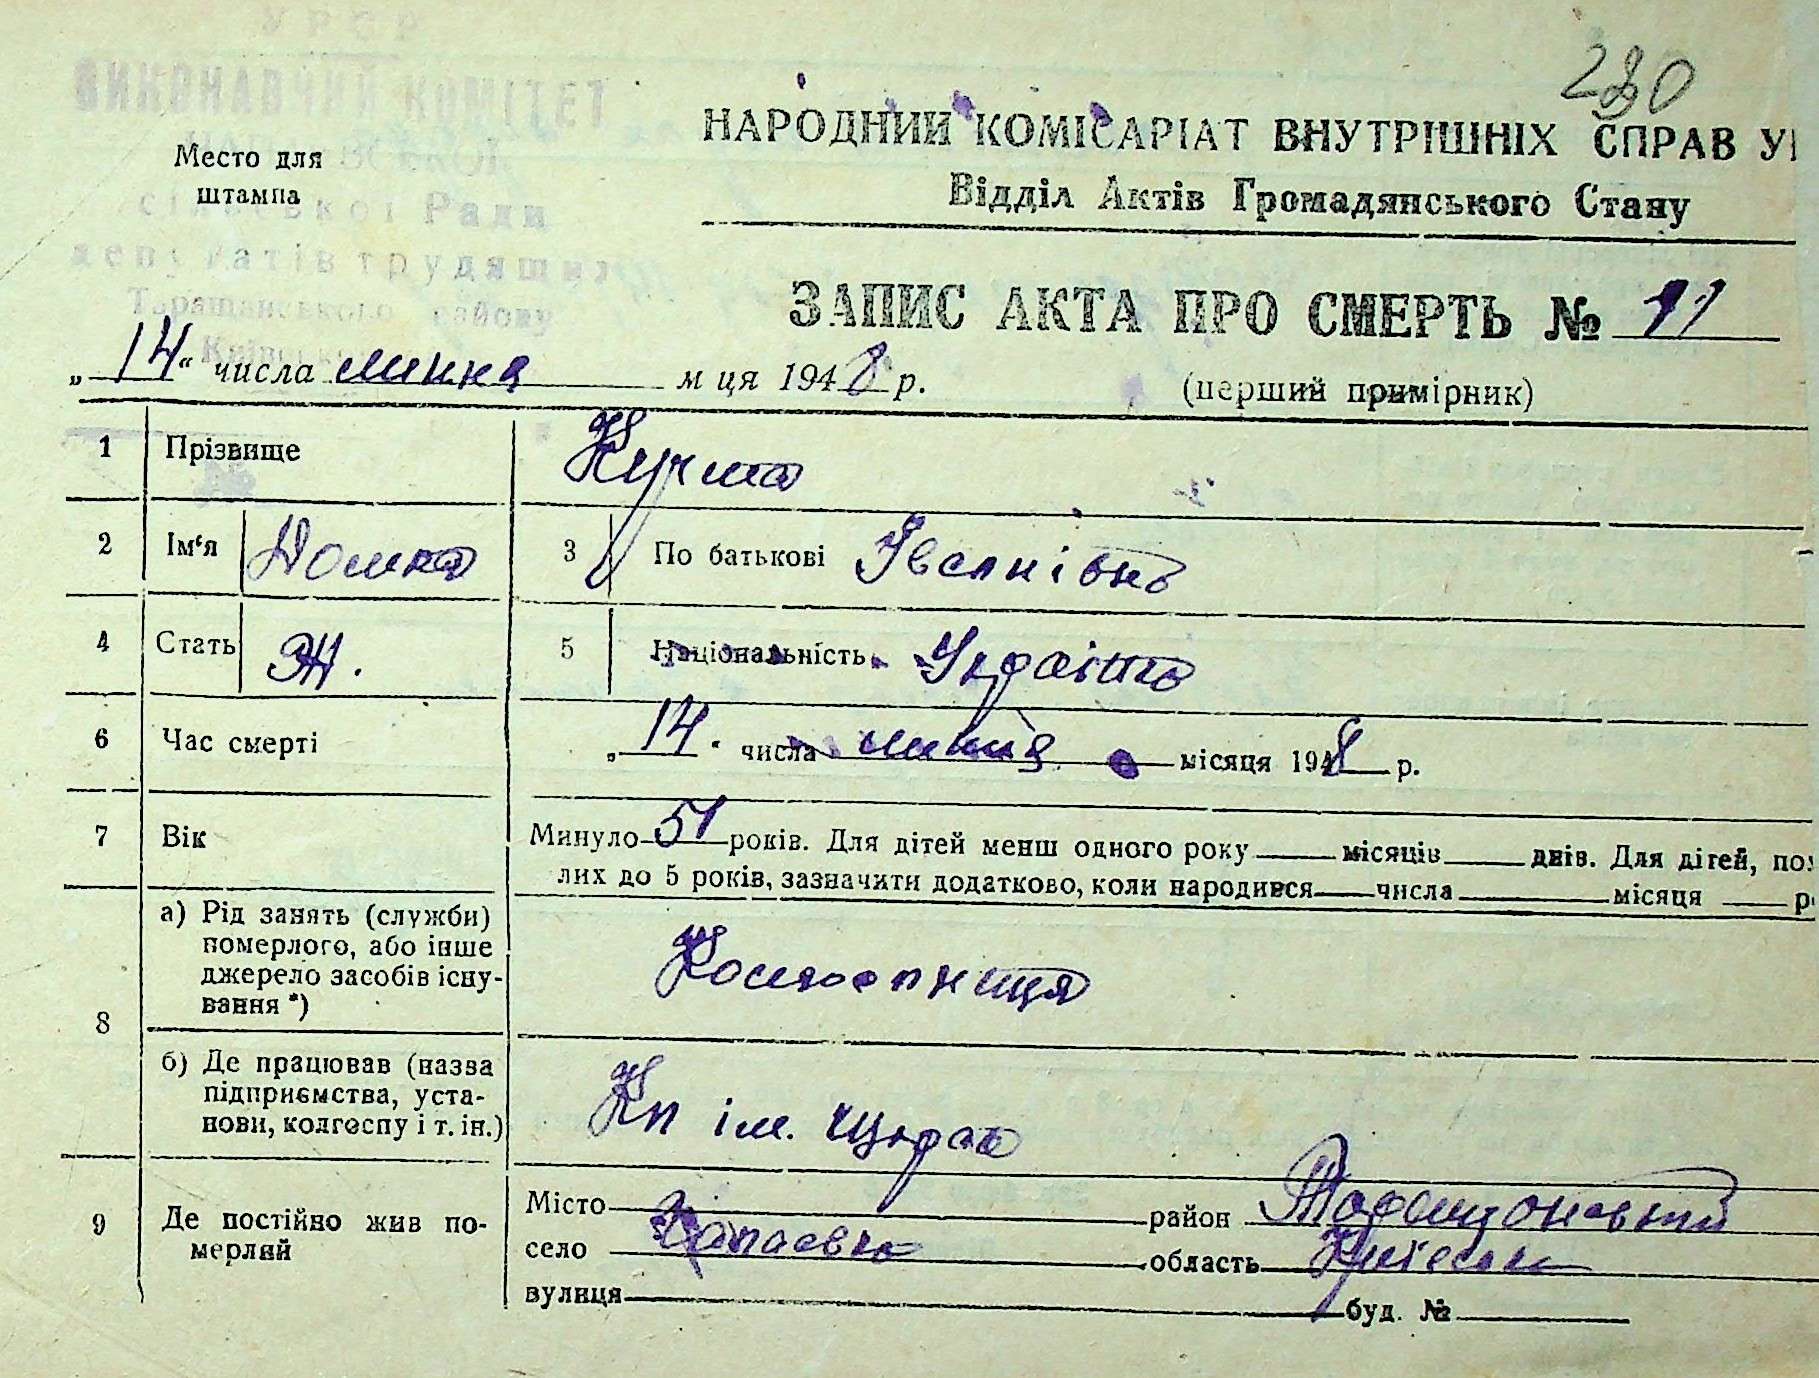 230
УРСР
ВИКОНАВЧИЙ КОМІТЕТ
сільської Ради
депутатів трудящих
Таращанського району
Київської
Место для
штампа
НАРОДНИЙ КОМІСАРІАТ ВНУТРІШНІХ СПРАВ У
Відділ Актів Громадянського Стану
ЗАПИС АКТА ПРО СМЕРТЬ № 11
„14“ числа липня м ця 1948 р. (перший примірник)
1 Прізвище Кучма
2 Ім‘я Домка 3 По батькові Іванівна
4 Стать Ж. 5 Національність Українка
6 Час смерті „14“ числа липня місяця 1948 р.
7 Вік Минуло 51 років. Для дітей менш одного року місяців днів. Для дітей, пом
лих до 5 років, зазначити додатково, коли народився числа місяця р
8 а) Рід занять (служби) померлого, або інше джерело засобів існу- вання *) Колгоспниця
б) Де працював (назва підприємства, уста- нови, колгоспу і т. ін.) Кп ім. Щорса
9 Де постійно жив по- мерлий Місто район Таращанський
село Чапаєвка область Київська
вулиця буд. №